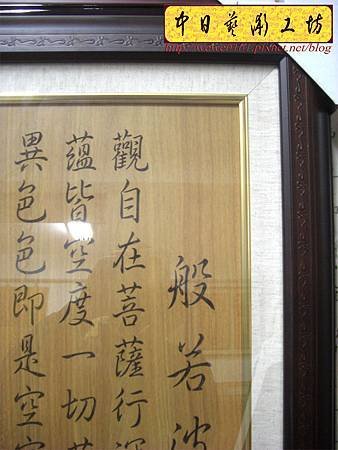 中日藝彫工坊
http://wewen101.pixnet.net/blog
般若波
觀自在菩薩行深
蘊皆空度一切苦
異色色即是空空